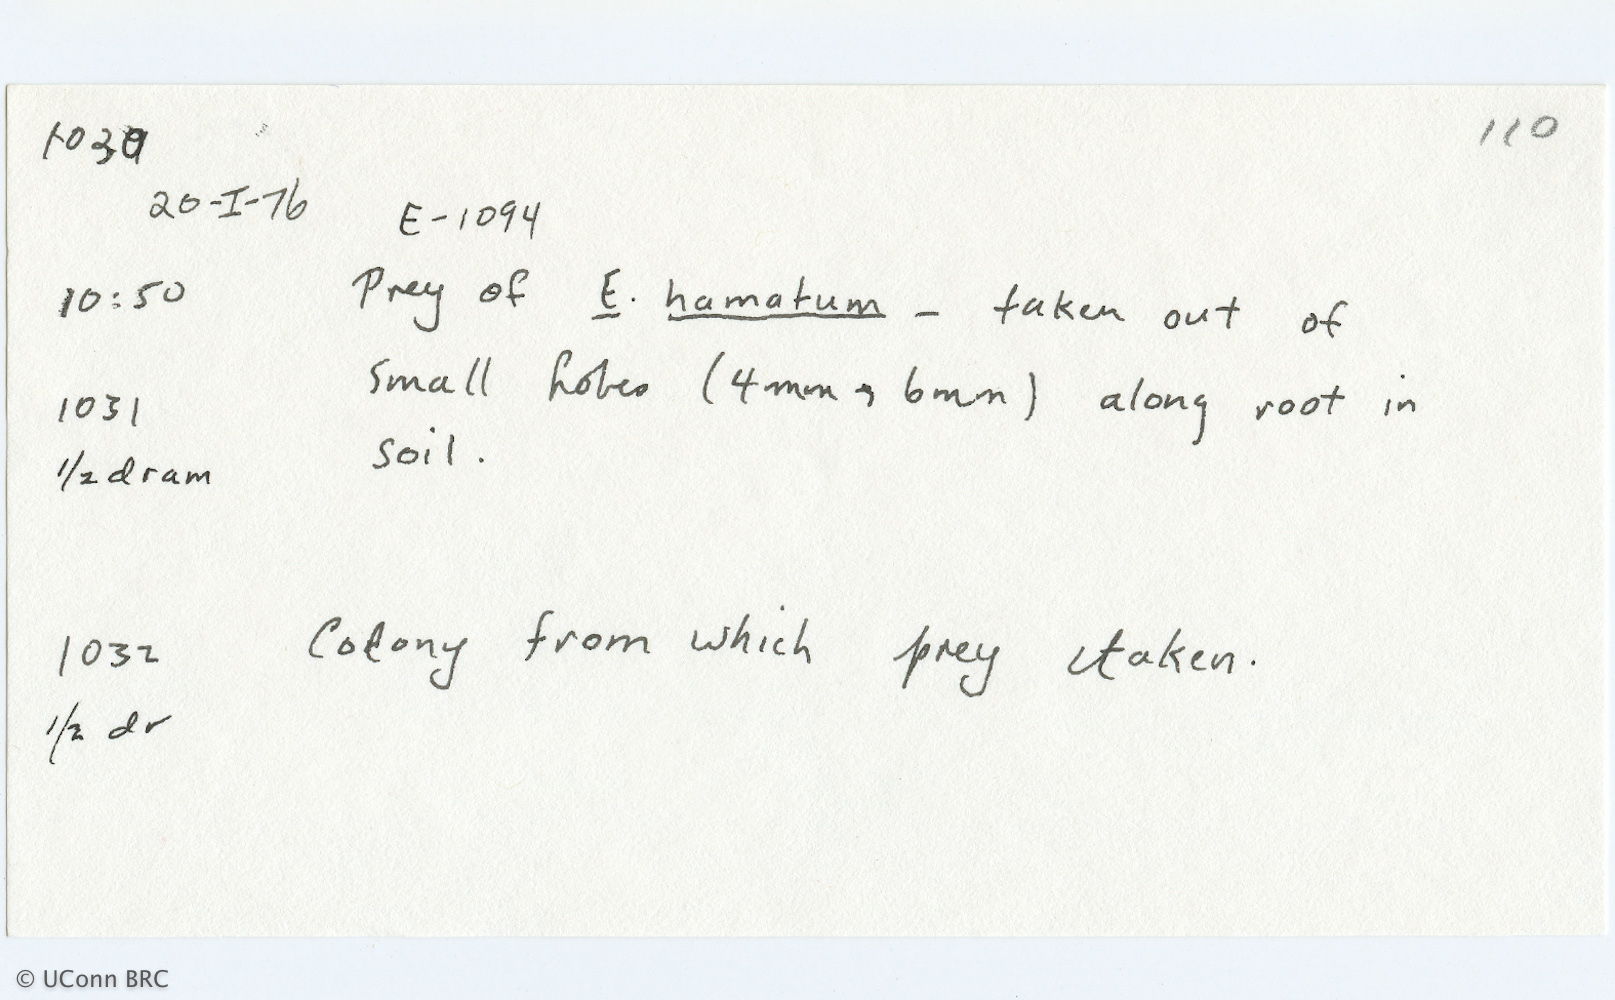 1030
110
20-I-76
E-1094
10:50 Prey of E. hamatum - taken out of
small holes (4mm, 6mm) along root in
1031
soil.
1/2 dram
1032 Colony from which prey taken.
1/2 dr
© UConn BRC